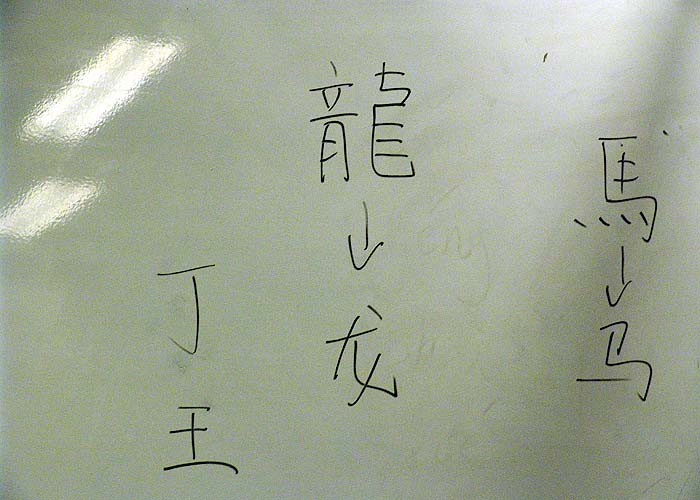 龍
↓
龙
馬
↓
马
丁
王